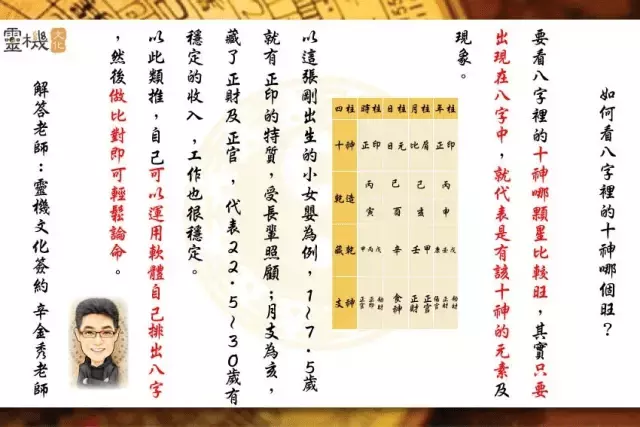 靈機文化
如何看八字裡的十神哪個旺？
要看八字裡的十神哪顆星比較旺，其實只要
出現在八字中，就代表是有該十神的元素及
現象。
四柱 時柱 日柱 月柱 年柱
十神 正印 日元 比肩 正印
乾造 丙寅 己酉 己亥 丙申
藏乾 甲丙戊 辛 壬甲 庚壬戊
支神 正官 正印 劫財 食神 正財 正官 傷官 正財 劫財
以這張剛出生的小女嬰為例，1~7.5歲
就有正印的特質，受長輩照顧；月支為亥，
藏了正財及正官，代表22.5~30歲有
穩定的收入，工作也很穩定。
以此類推，自己可以運用軟體自己排出八字
，然後做比對即可輕鬆論命。
解答老師：靈機文化簽約 辛金秀老師